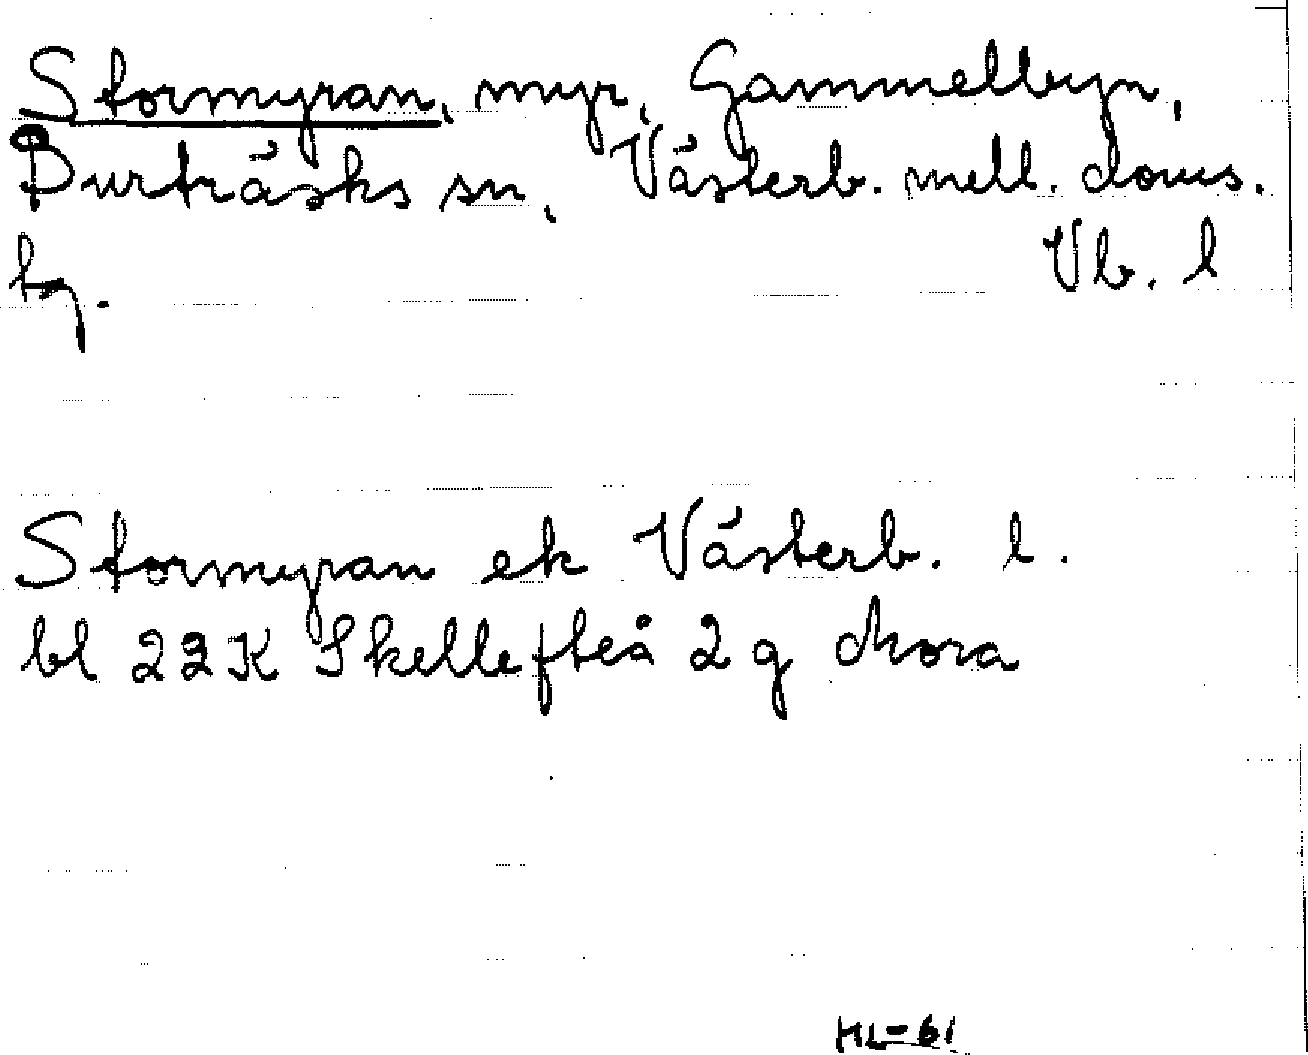 Stormyran, myr, Gammelbyn,
Burträsks sn, Västerb. mell. doms.
tg. Vb. l
Stormyran ek Västerb. l.
bl 22K Skellefteå 2 g Mora
HL-61